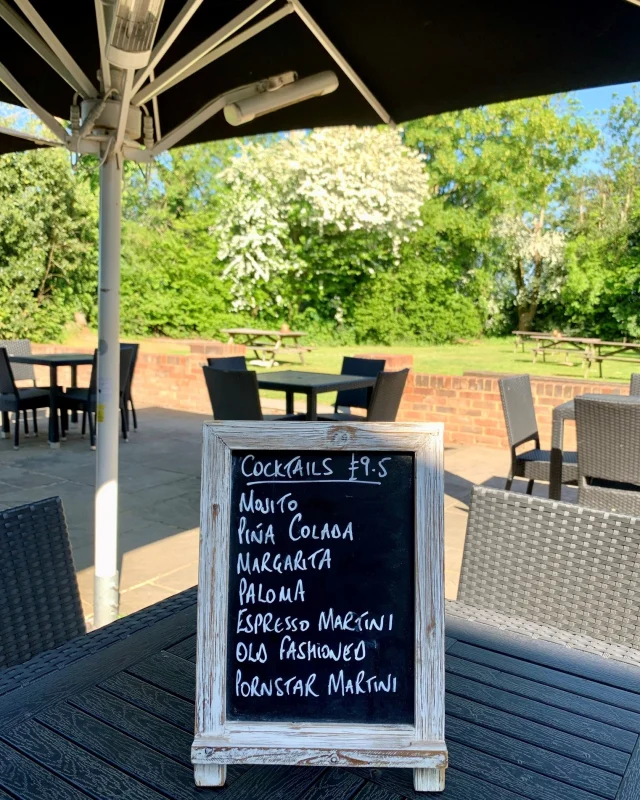 COCKTAILS £9.5
MOJITO
PIÑA COLADA
MARGARITA
PALOMA
ESPRESSO MARTINI
OLD FASHIONED
PORNSTAR MARTINI